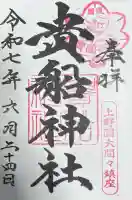 奉拝
上野國大間々鎮座
貴船神社
令和七年六月二十四日